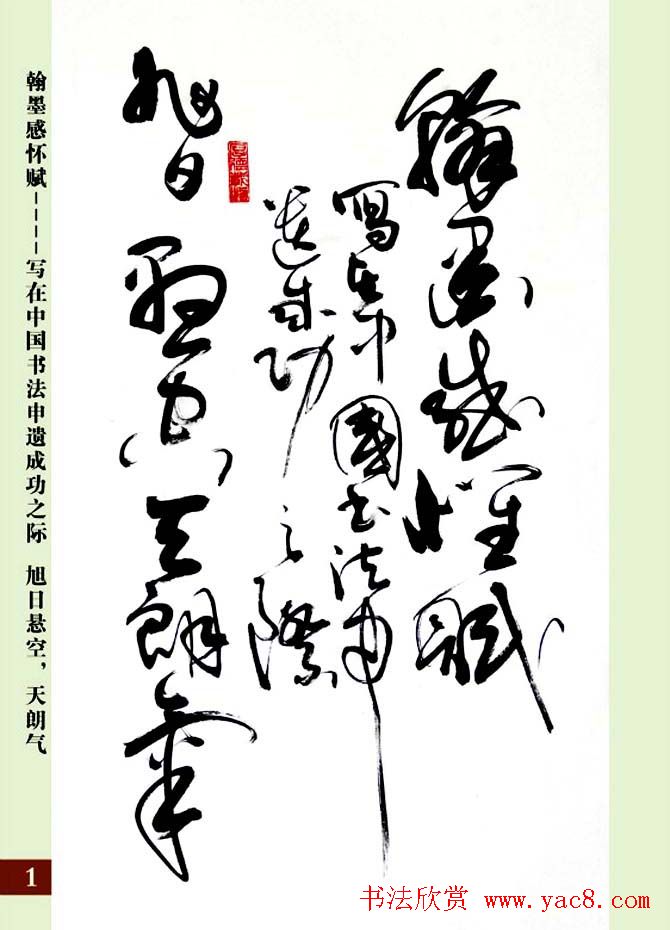 翰墨感怀赋
寫在中國书法申
遗成功之際
旭日悬空天朗氣
翰墨感怀赋----写在中国书法申遗成功之际 旭日悬空，天朗气
1
书法欣赏 www.yac8.com